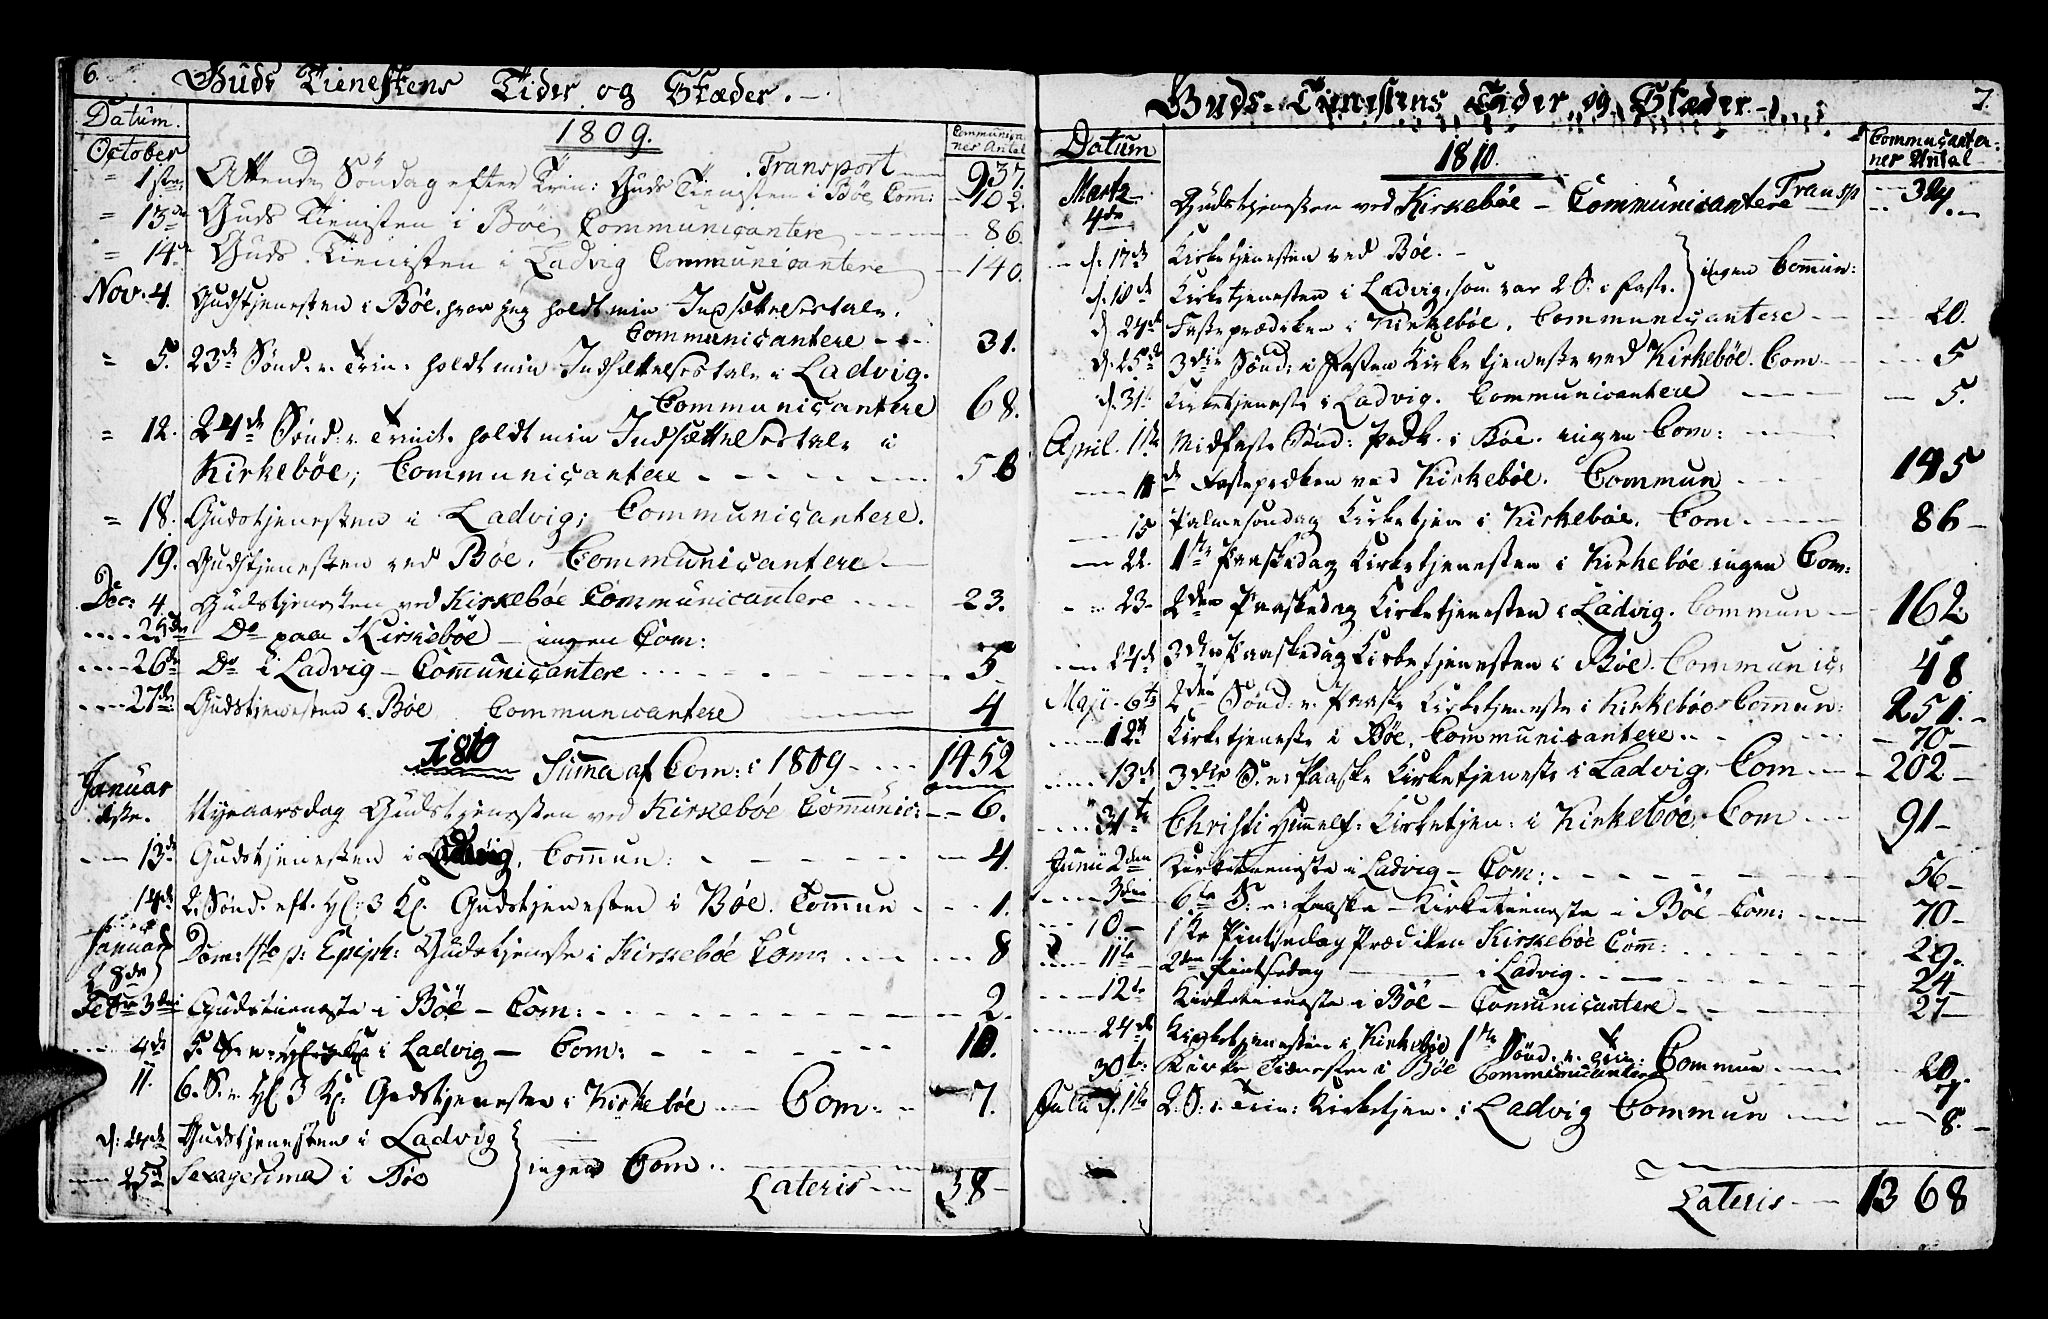 6.
Guds Tienestens Tider og Stæder.
Datum.
1809.
Communican
ner Antal
October
Transport 937.
1ste Attende Söndag efter Trin: Guds Tienesten i Böe Com: 102.
= 13de Guds Tienisten i Böe Communicantere 86.
= 14de Guds Tienisten i Ladvig Communicantere 140.
Nov. 4. Gudstjenesten i Bøe, hvor jeg holdt min Indsættelsestale.
Communicantere 31.
= 5. 23de Sønd. e. Trin. holdt min Indsættelsestale i Ladvig.
Communicantere 68.
= 12. 24de Sønd: e. Trinit. holdt min Indsættelsestale i
Kirkebøe; Communicantere 56
= 18. Gudstjenesten i Ladvig; Communicantere.
19. Gudstjenesten ved Bøe. Communicantere
Dec: 4. Gudstjenesten ved Kirkebøe Communicantere 23.
25de Do paa Kirkebøe – ingen Com:
26de Do i Ladvig – Communicantere 5
27de Gudstienesten i Bøe Communicantere 4
1810 Summa af Com: i 1809 1452
Januar
1ste. Nyeaarsdag Gudstjenesten ved Kirkebøe Communic: 6.
13de Gudstjenesten i Ladvig. Commun: 4.
14de 2. Sønd. eft. Hl: 3 K. Gudstjenesten i Bøe. Commun 1.
Januar
28de Dom: 4to p: Epiph: Gudstjeneste i Kirkebøe Com: 8
Febr 3die Gudstieneste i Bøe – Com: 2.
4de 5. S. e. Hl. 3 K. i Ladvig – Com: 10.
11. 6. S. e. Hl 3 K. Gudstjenesten i Kirkebøe Com: 7.
d: 24de Gudstjenesten i Ladvig
25de Sexagesima i Bøe } ingen Com.
Lateris 38
Guds-Tienestens Tider og Stæder
7.
Datum
1810.
Communicanter:
ner Antal
Martz
Transp 38
4de Gudstjenesten ved Kirkebøe – Communicantere 4.
d: 17de Kirketjenesten ved Bøe.
d. 18de Kirketjenesten i Ladvig, som var 2 S. i Faste. } ingen Commun:
d. 24de Fasteprædiken i Kirkebøe. Communicantere 20.
d. 25de 3die Sønd: i Fasten Kirketjeneste ved Kirkebøe. Com 5
d. 31te Kirketjeneste i Ladvig. Communicantere 5.
April. 1ste Midfaste Sønd: Prædk. i Bøe. ingen Com:
11de Fasteprdken ved Kirkebøe. Commun 145
15 Palmesøndag Kirketjen i Kirkebøe. Com. 86
22. 1ste Paaskedag Kirketjenesten i Kirkebøe ingen Com:
23 2den Paaskedag Kirketjenesten i Ladvig. Commun 162
24de 3die Paaskedag Kirketjenesten i Bøe. Communic: 48
Maji 6te 2den Sønd: e. Paaske Kirketjeneste i Kirkebøe Commun: 251.
12te Kirketjeneste i Bøe. Communicantere 70
13de 3die S. e. Paaske Kirketjeneste i Ladvig. Com 202
31te Christi Himmelf: Kirketjen: i Kirkebøe Com 91
Junii 2den Kirketieneste i Ladvig – Com: 56
3die 6te S. e. Paaske – Kirketieneste i Bøe – Com: 70
10 1ste Pintsedag Prædiken Kirkebøe Com: 29.
11te 2den Pintsedag i Ladvig 24
12te Kirketieneste i Bøe – Communicantere 27
24de Kirketjenesten i Kirkebøe 1ste Sønd. e. Trin: Commun 20.
30te: Kirke Tienesten i Bøe Communicantere 7
Julii d. 1ste 2. S. e. Trin: Kirketjen. i Ladvig Commun 8.
Lateris 1368